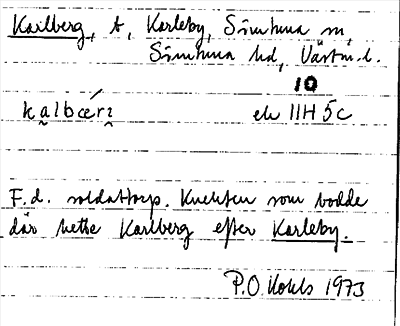 Karlberg, t, Karleby, Simtuna sn,
Simtuna hd, Västm.l.
10
kalbærɪ ek 11H 5c
F.d. soldattorp. Knekten som bodde
där hette Karlberg efter Karleby.
P.O. Kohls 1973